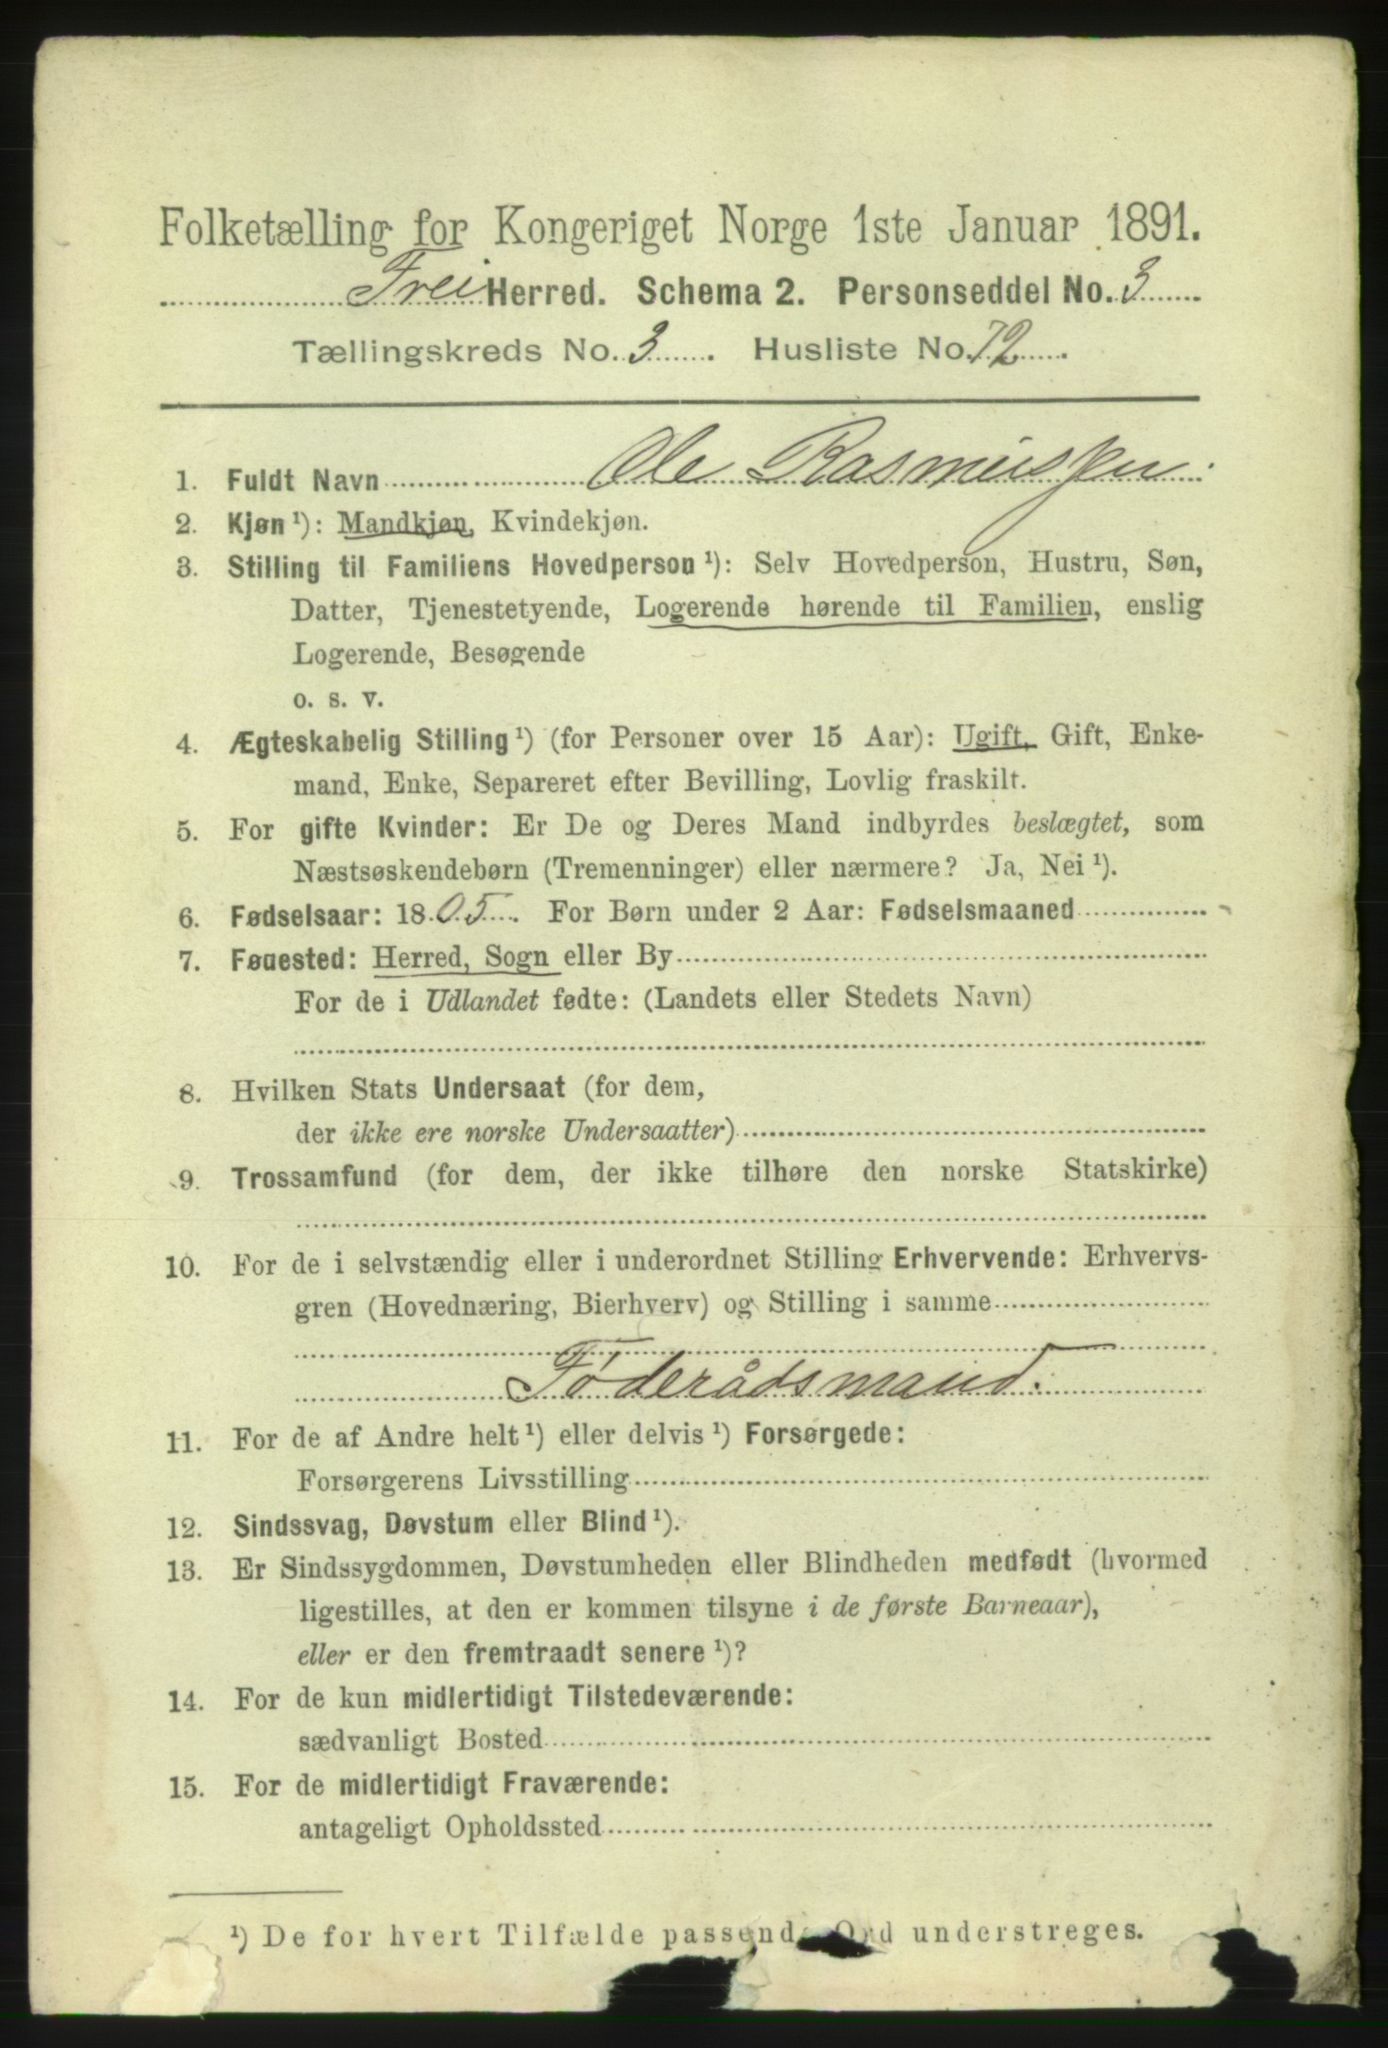 Folketælling for Kongeriget Norge 1ste Januar 1891.
Frei Herred. Schema 2. Personseddel No. 3
Tællingskreds No. 3. Husliste No. 72.
1. Fuldt Navn Ole Rasmussen.
2. Kjøn ¹): Mandkjøn, Kvindekjøn.
3. Stilling til Familiens Hovedperson ¹): Selv Hovedperson, Hustru, Søn,
Datter, Tjenestetyende, Logerende hørende til Familien, enslig
Logerende, Besøgende
o. s. v.
4. Ægteskabelig Stilling ¹) (for Personer over 15 Aar): Ugift, Gift, Enke-
mand, Enke, Separeret efter Bevilling, Lovlig fraskilt.
5. For gifte Kvinder: Er De og Deres Mand indbyrdes beslægtet, som
Næstsøskendebørn (Tremenninger) eller nærmere? Ja, Nei ¹).
6. Fødselsaar: 1805. For Børn under 2 Aar: Fødselsmaaned
7. Føuested: Herred, Sogn eller By
For de i Udlandet fødte: (Landets eller Stedets Navn)
8. Hvilken Stats Undersaat (for dem,
der ikke ere norske Undersaatter)
9. Trossamfund (for dem, der ikke tilhøre den norske Statskirke)
10. For de i selvstændig eller i underordnet Stilling Erhvervende: Erhvervs-
gren (Hovednæring, Bierhverv) og Stilling i samme
Føderådsmand.
11. For de af Andre helt ¹) eller delvis ¹) Forsørgede:
Forsørgerens Livsstilling
12. Sindssvag, Døvstum eller Blind ¹).
13. Er Sindssygdommen, Døvstumheden eller Blindheden medfødt (hvormed
ligestilles, at den er kommen tilsyne i de første Barneaar),
eller er den fremtraadt senere ¹)?
14. For de kun midlertidigt Tilstedeværende:
sædvanligt Bosted
15. For de midlertidigt Fraværende:
antageligt Opholdssted
¹) De for hvert Tilfælde passende Ord understreges.